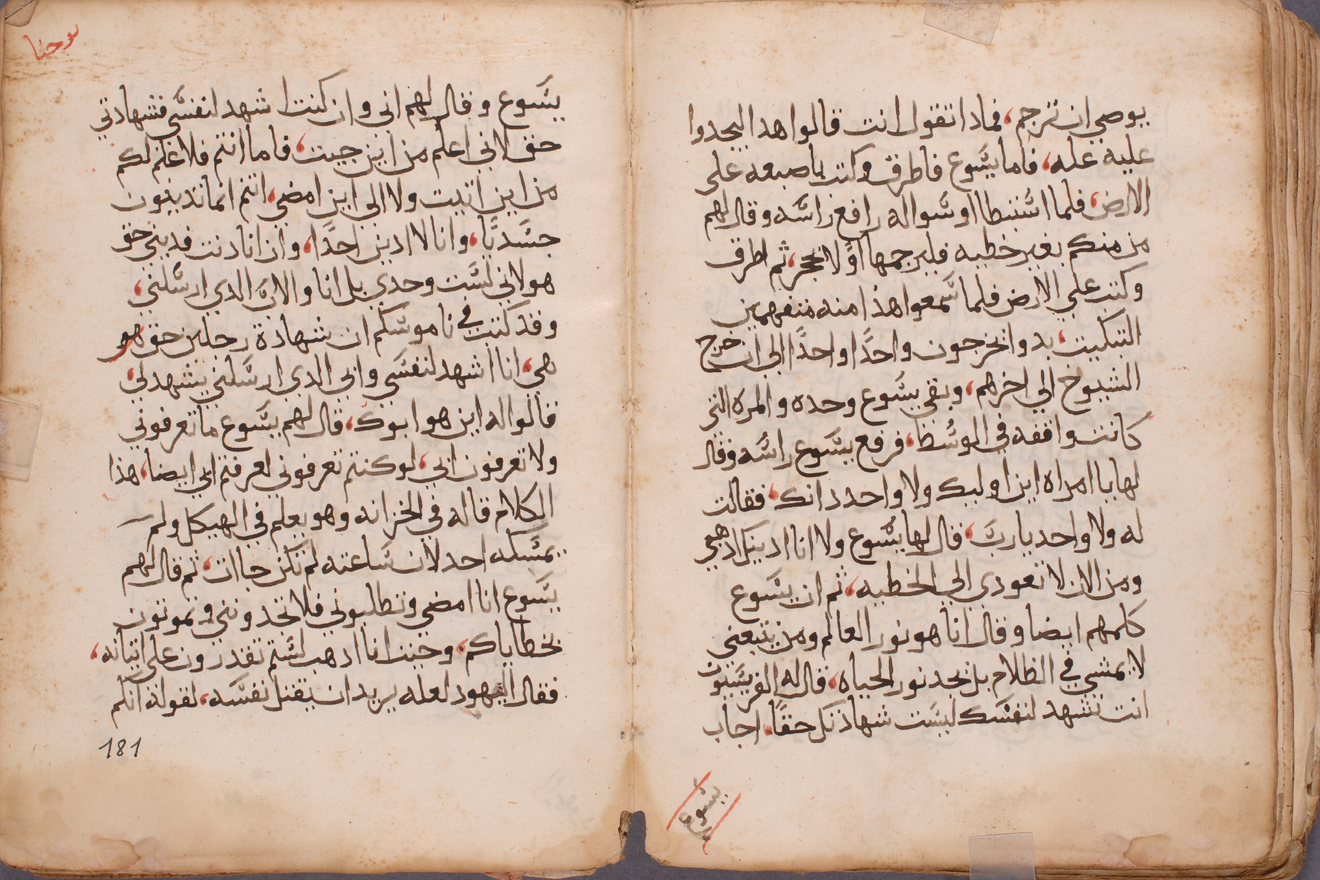 يوصي ان ترجم، فماذا تقول انت قالوا هذا ليجدوا
عليه عله، فاما يسوع فاطرق وكتب باصبعه على
الارض، فلما استبطا اوسواله رافع راسه وقال لهم
من منكم بغير خطيه فليرجمها اولا بحجر، ثم اطرق
وكتب على الارض فلما سمعوا هذا منه متفهمين
التبكيت، بدوا يخرجون واحدًا واحدًا الى ان خرج
الشيوخ الى اخرهم، وبقي يسوع وحده والمره التي
كانت واقفه في الوسط، فرفع يسوع راسه وقال
لها يا امراه اين اوليك ولا واحد دانك، فقالت
له ولا واحد يارب، قال لها يسوع ولا انا ادينك اذهبي
ومن الان لا تعودي الى الخطيه، ثم ان يسوع
كلمهم ايضا وقال انا هو نور العالم ومن يتبعني
لا يمشي في الظلام بل يجد نور الحياه، قال له الفريسيون
انت تشهد لنفسك ليست شهادتك حقًا، اجاب
يسوع
وقال
يوحنا
يسوع وقال لهم اني وان كنت اشهد لنفسي فشهادتي
حق لاني اعلم من اين جيت، فاما انتم فلا علم لكم
من اين اتيت ولا الى اين امضي، انتم انما تدينون
جسديًا، وانا لا ادين احدًا، وان انا دنت فديني حق
هو لاني لست وحدي بل انا والاب الذي ارسلني،
وقد كتب في ناموسكم ان شهادة رجلين حق هو
هي، انا اشهد لنفسي وابي الذي ارسلني يشهد لي،
قالوا له اين هو ابوك، قال لهم يسوع ما تعرفوني
ولا تعرفون ابي، لو كنتم تعرفوني لعرفتم ابي ايضا، هذا
الكلام قاله في الخزانه وهو يعلم في الهيكل ولم
يمسكه احد لان ساعته لم تكن جاات، ثم قال لهم
يسوع انا امضي وتطلبوني فلا تجدونني وتموتون
بخطاياكم، وحيث انا اذهب لستم تقدرون على اتيانه،
فقال اليهود لعله يريد ان يقتل نفسه، لقوله انكم
181